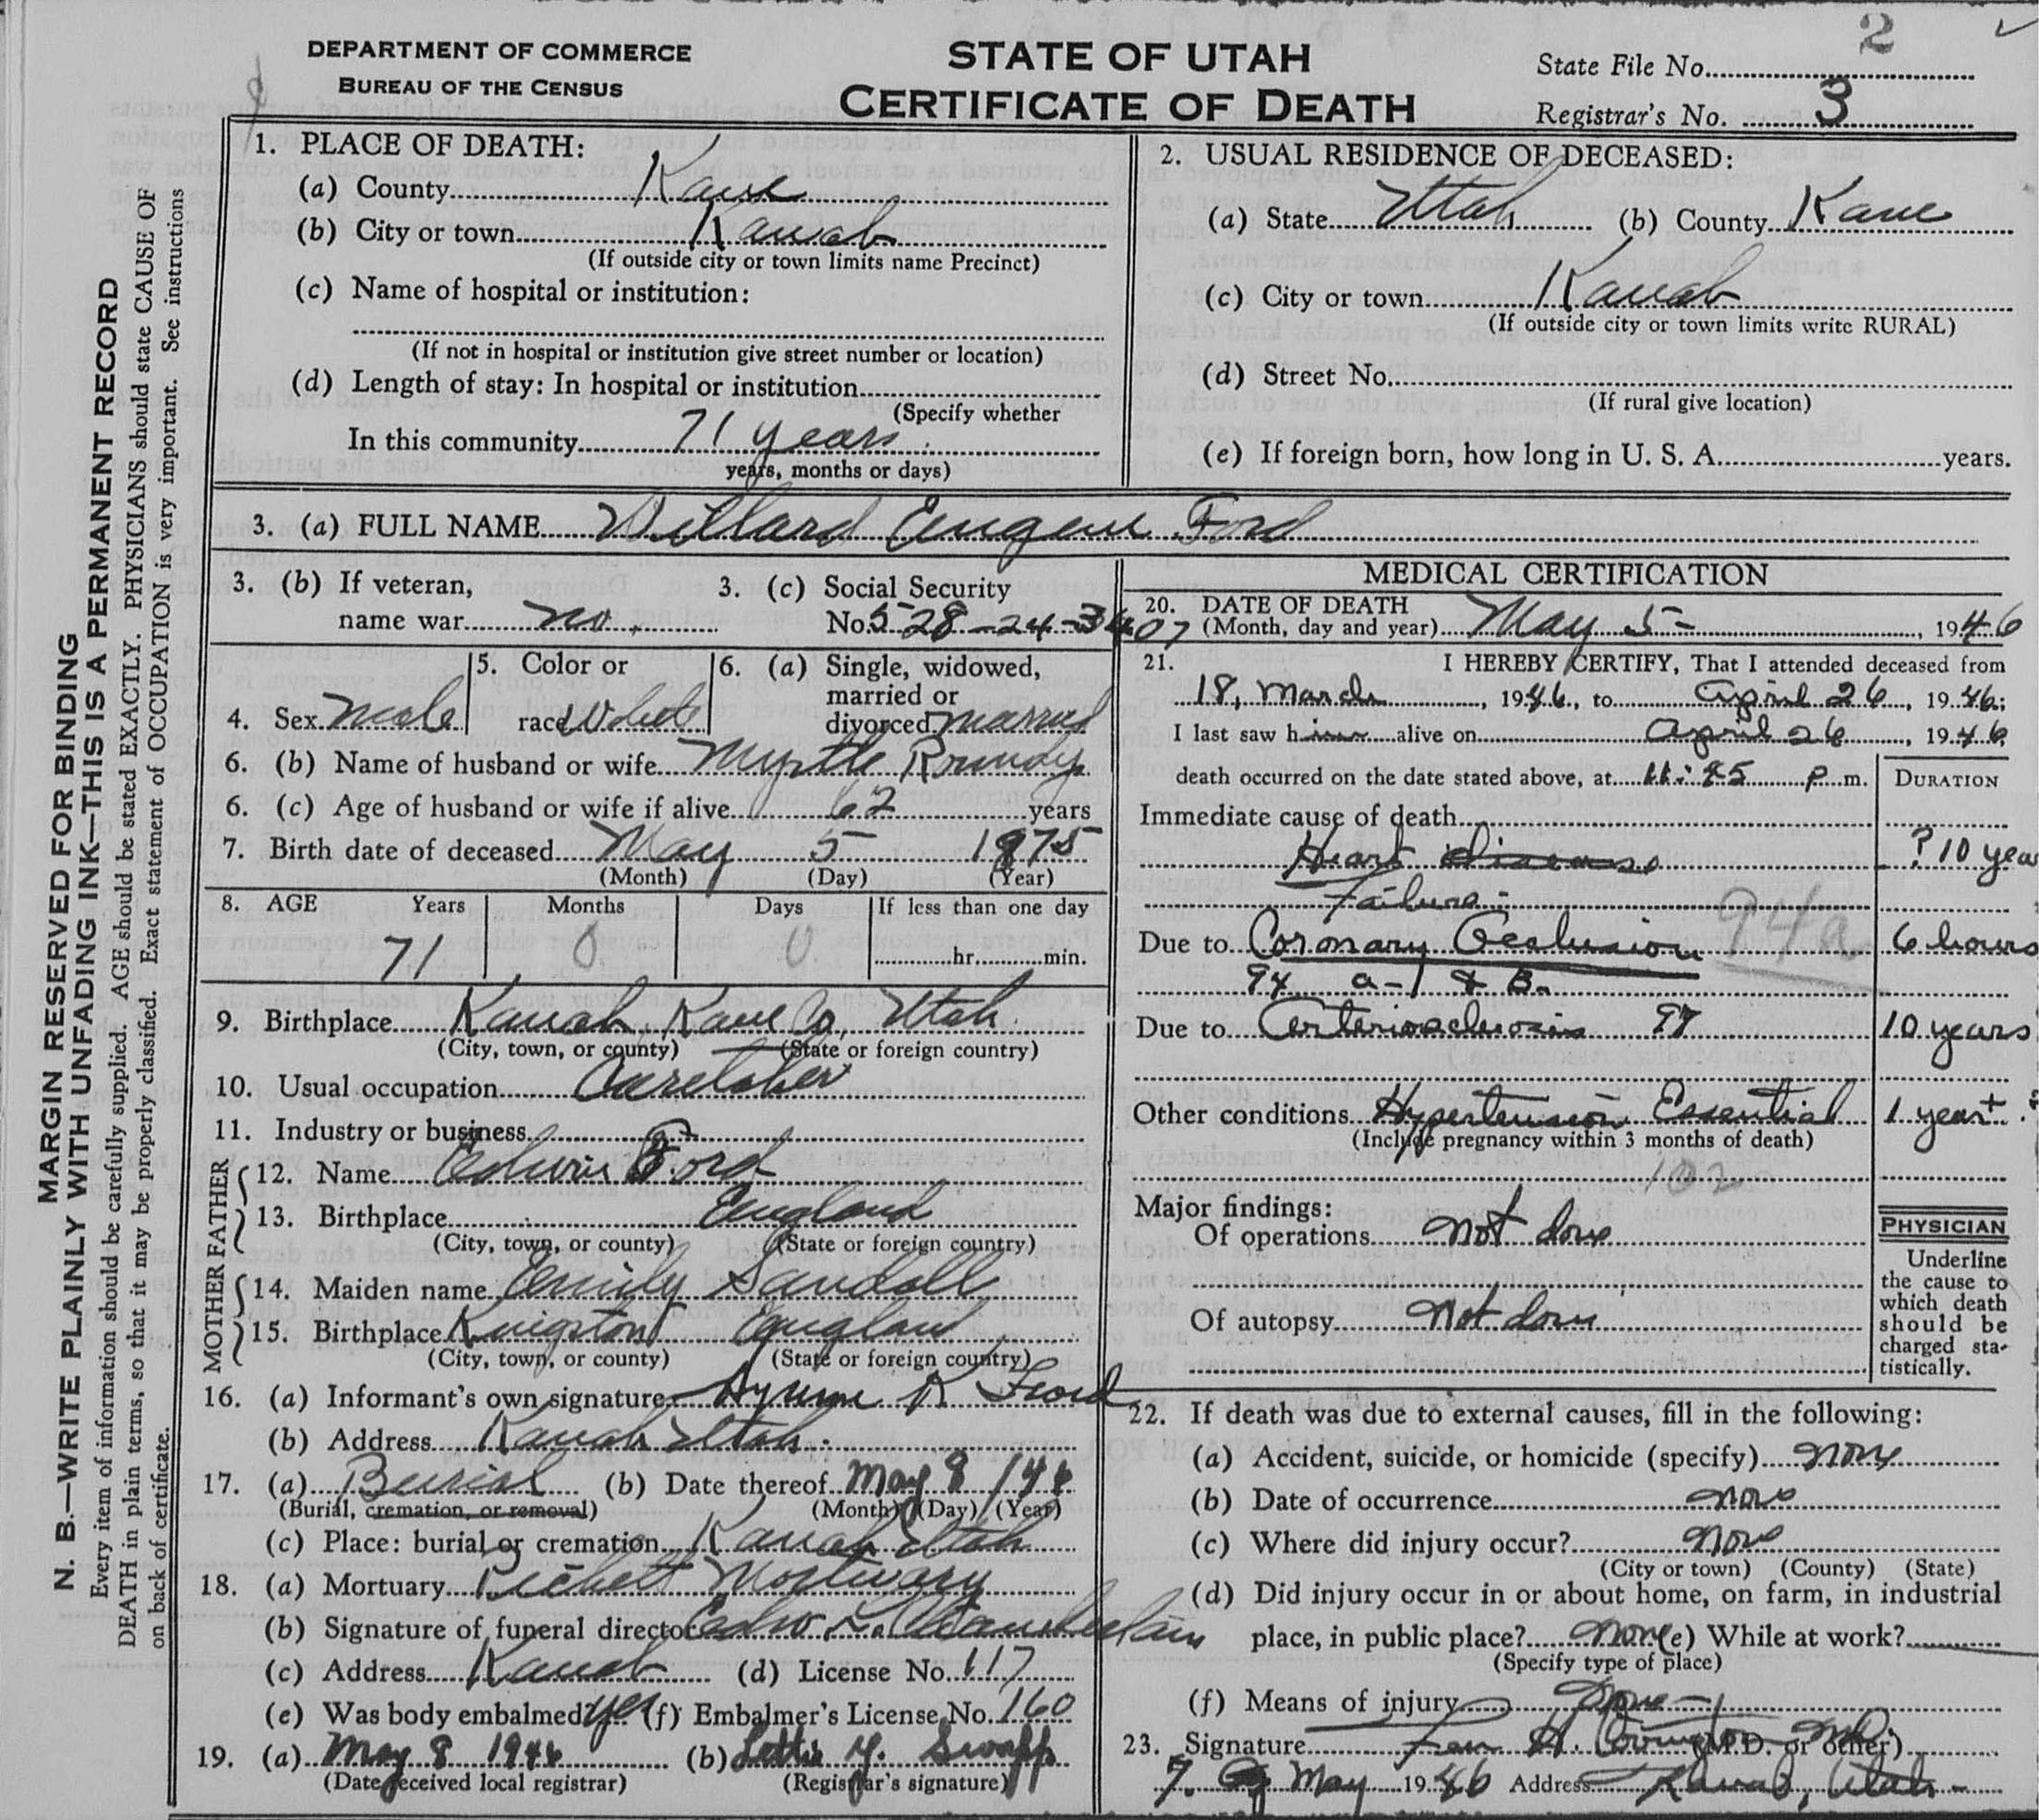 2
DEPARTMENT OF COMMERCE
BUREAU OF THE CENSUS
STATE OF UTAH
CERTIFICATE OF DEATH
State File No.
Registrar's No. 3
MARGIN RESERVED FOR BINDING
N. B.—WRITE PLAINLY WITH UNFADING INK—THIS IS A PERMANENT RECORD
Every item of information should be carefully supplied. AGE should be stated EXACTLY. PHYSICIANS should state CAUSE OF
DEATH in plain terms, so that it may be properly classified. Exact statement of OCCUPATION is very important. See instructions
on back of certificate.
1. PLACE OF DEATH:
(a) County Kane
(b) City or town Kanab
(If outside city or town limits name Precinct)
(c) Name of hospital or institution:
(If not in hospital or institution give street number or location)
(d) Length of stay: In hospital or institution
(Specify whether
In this community 71 years
years, months or days)
2. USUAL RESIDENCE OF DECEASED:
(a) State Utah (b) County Kane
(c) City or town Kanab
(If outside city or town limits write RURAL)
(d) Street No.
(If rural give location)
(e) If foreign born, how long in U. S. A. years.
3. (a) FULL NAME Willard Eugene Ford
3. (b) If veteran,
name war no.
3. (c) Social Security
No. 528-24-3407
4. Sex Male
5. Color or
race White
6. (a) Single, widowed,
married or
divorced married
6. (b) Name of husband or wife Myrtle Roundy
6. (c) Age of husband or wife if alive 62 years
7. Birth date of deceased May 5 1875
(Month) (Day) (Year)
8. AGE Years Months Days If less than one day
71 0 0 hr. min.
9. Birthplace Kanab, Kane Co, Utah
(City, town, or county) (State or foreign country)
10. Usual occupation Caretaker
11. Industry or business
FATHER
12. Name Edwin Ford
13. Birthplace England
(City, town, or county) (State or foreign country)
MOTHER
14. Maiden name Emily
15. Birthplace Kingston England
(City, town, or county) (State or foreign country)
16. (a) Informant's own signature R Ford
(b) Address Kanab Utah.
17. (a) Burial (b) Date thereof May 8
(Burial, cremation, or removal) (Month) (Day) (Year)
(c) Place: burial or cremation Kanab Utah
18. (a) Mortuary Mortuary
(b) Signature of funeral director Chamberlain
(c) Address Kanab (d) License No. 117
(e) Was body embalmed? yes (f) Embalmer's License No. 160
19. (a) May 8 1946 (b) Swapp
(Date received local registrar) (Registrar's signature)
MEDICAL CERTIFICATION
20. DATE OF DEATH
(Month, day and year) May 5 -, 1946
21. I HEREBY CERTIFY, That I attended deceased from
18, March, 1946, to April 26, 1946;
I last saw him alive on April 26, 1946
death occurred on the date stated above, at P m.
DURATION
Immediate cause of death
Heart disease ? 10 year
Failure
Due to Coronary Occlusion 94a 6 hours
94 a-1 & B.
Due to Arteriosclerosis 97 10 years
Other conditions Hypertension Essential 1 year+
(Include pregnancy within 3 months of death)
102
Major findings:
Of operations not done
Of autopsy not done
PHYSICIAN
Underline
the cause to
which death
should be
charged sta-
tistically.
22. If death was due to external causes, fill in the following:
(a) Accident, suicide, or homicide (specify) none
(b) Date of occurrence none
(c) Where did injury occur? none
(City or town) (County) (State)
(d) Did injury occur in or about home, on farm, in industrial
place, in public place? none (e) While at work?
(Specify type of place)
(f) Means of injury none
23. Signature (M.D. or other)
7. May 1946 Address Kanab, Utah -